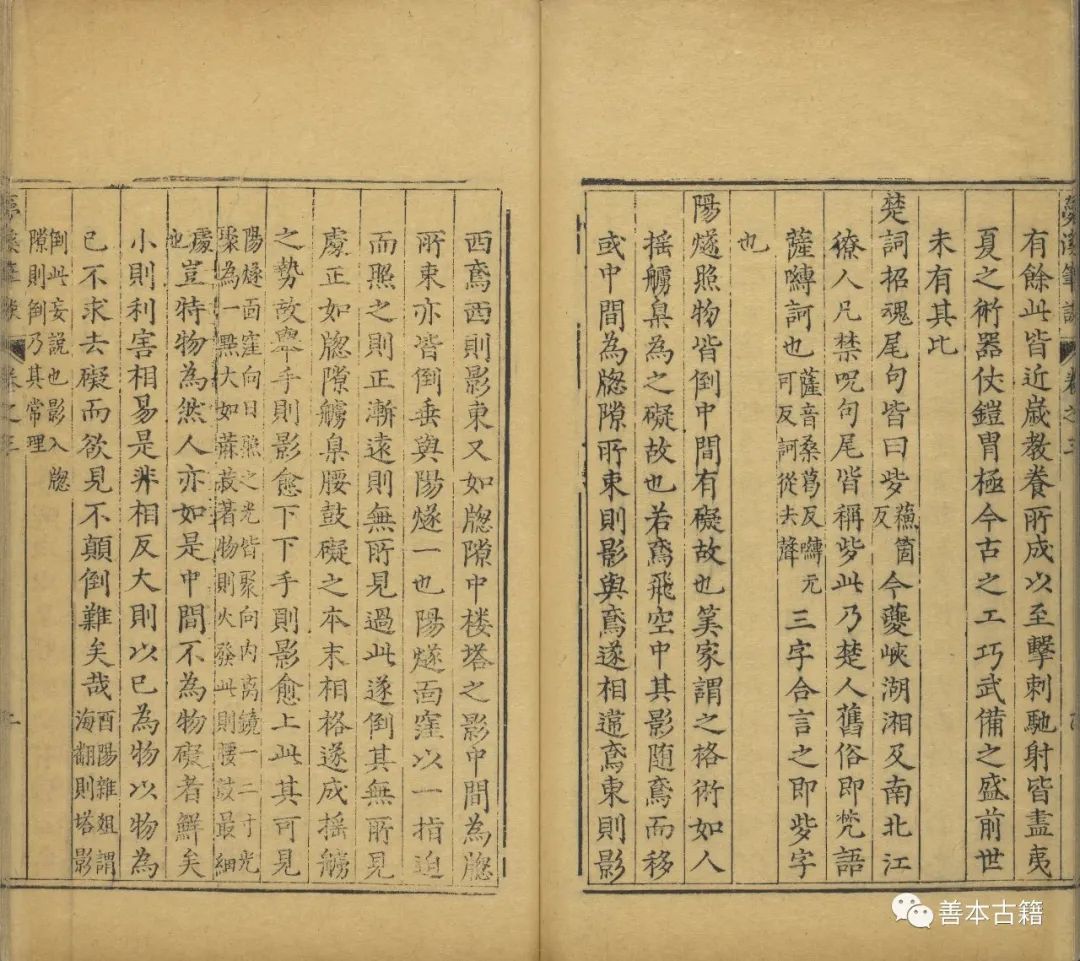 有餘此皆近歲教養所成以至擊刺馳射皆盡夷
夏之術器仗鎧胄極今古之工巧武備之盛前世
未有其比
楚詞招魂尾句皆曰些蘓箇反今夔峽湖湘及南北江
獠人凡禁呪句尾皆稱些此乃楚人舊俗即梵語
薩嚩訶也薩音桑葛反嚩無可反訶從去聲三字合言之即些字
也
陽燧照物皆倒中間有礙故也筭家謂之格術如人
搖艣臬為之礙故也若鳶飛空中其影随鳶而移
或中間為牕隙所束則影與鳶遂相違鳶東則影
西鳶西則影東又如牕隙中楼塔之影中間為牕
所束亦皆倒垂與陽燧一也陽燧面窪以一指迫
而照之則正漸遠則無所見過此遂倒其無所見
處正如牕隙艣臬腰鼓礙之本末相格遂成搖艣
之勢故舉手則影愈下下手則影愈上此其可見
陽燧面窪向日照之光皆聚向内离鏡一二寸光
聚為一點大如蔴菽著物則火發此則腰鼓最細
處也豈特物為然人亦如是中間不為物礙者鮮矣
小則利害相易是非相反大則以已為物以物為
已不求去礙而欲見不顛倒難矣哉酉陽雜俎謂海翻則塔影
倒此妄說也影入牕
隙則倒乃其常理
善本古籍